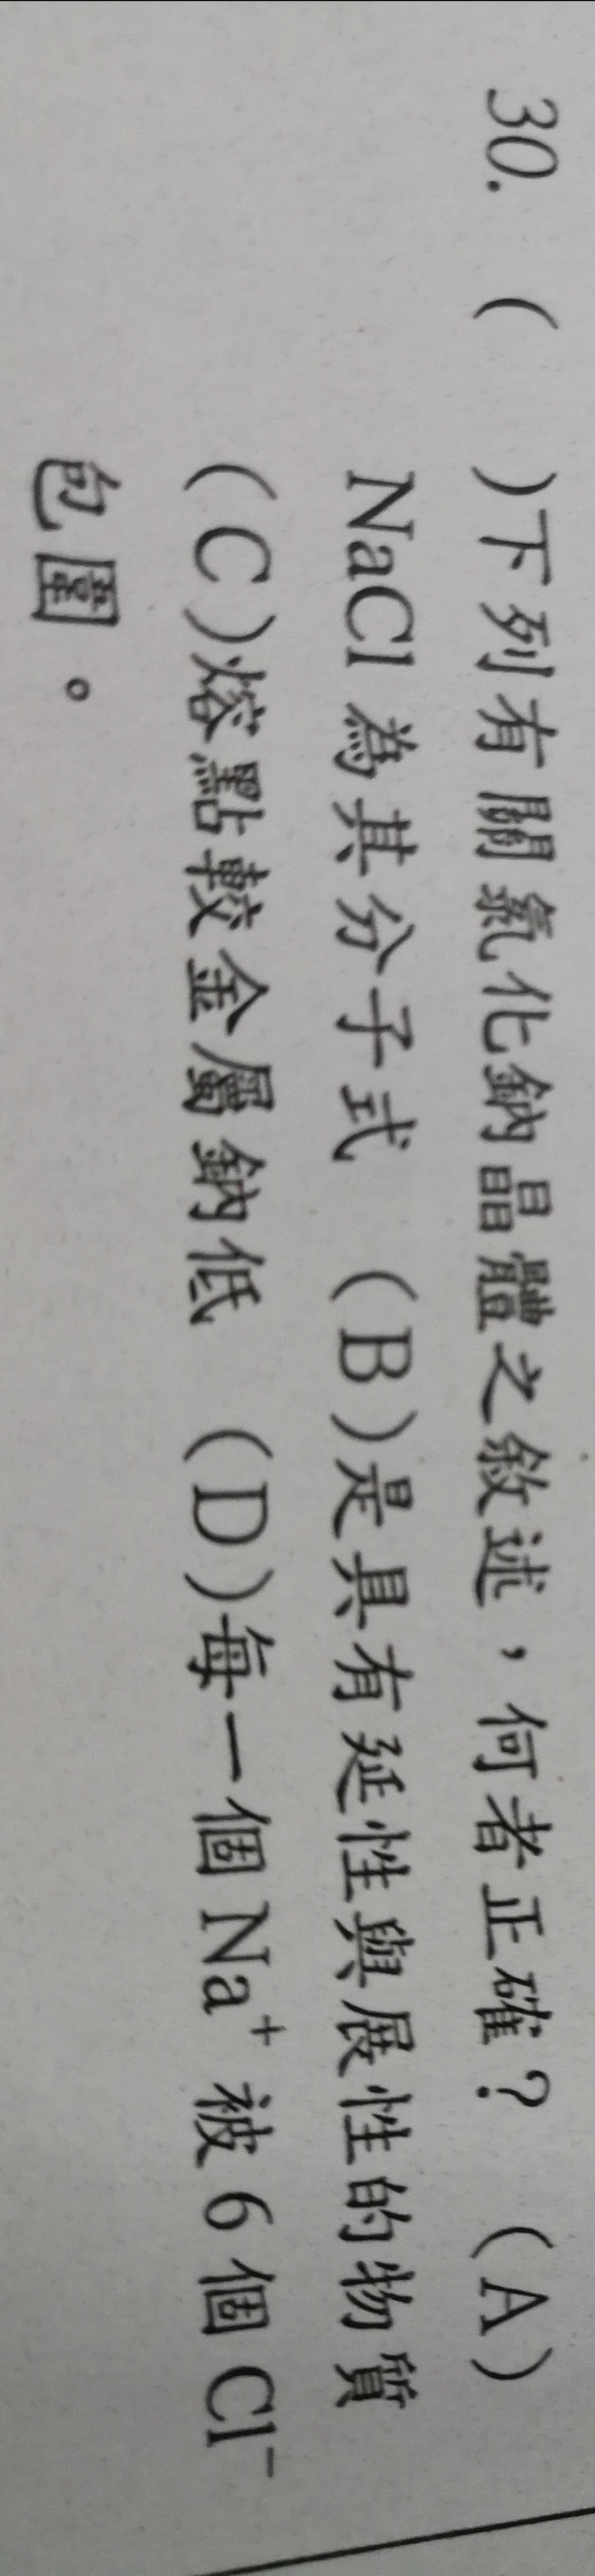 30. (   )下列有關氯化鈉晶體之敘述，何者正確？ (A)
NaCl 為其分子式 (B)是具有延性與展性的物質
(C)熔點較金屬鈉低 (D)每一個 Na⁺ 被 6 個 Cl⁻
包圍。